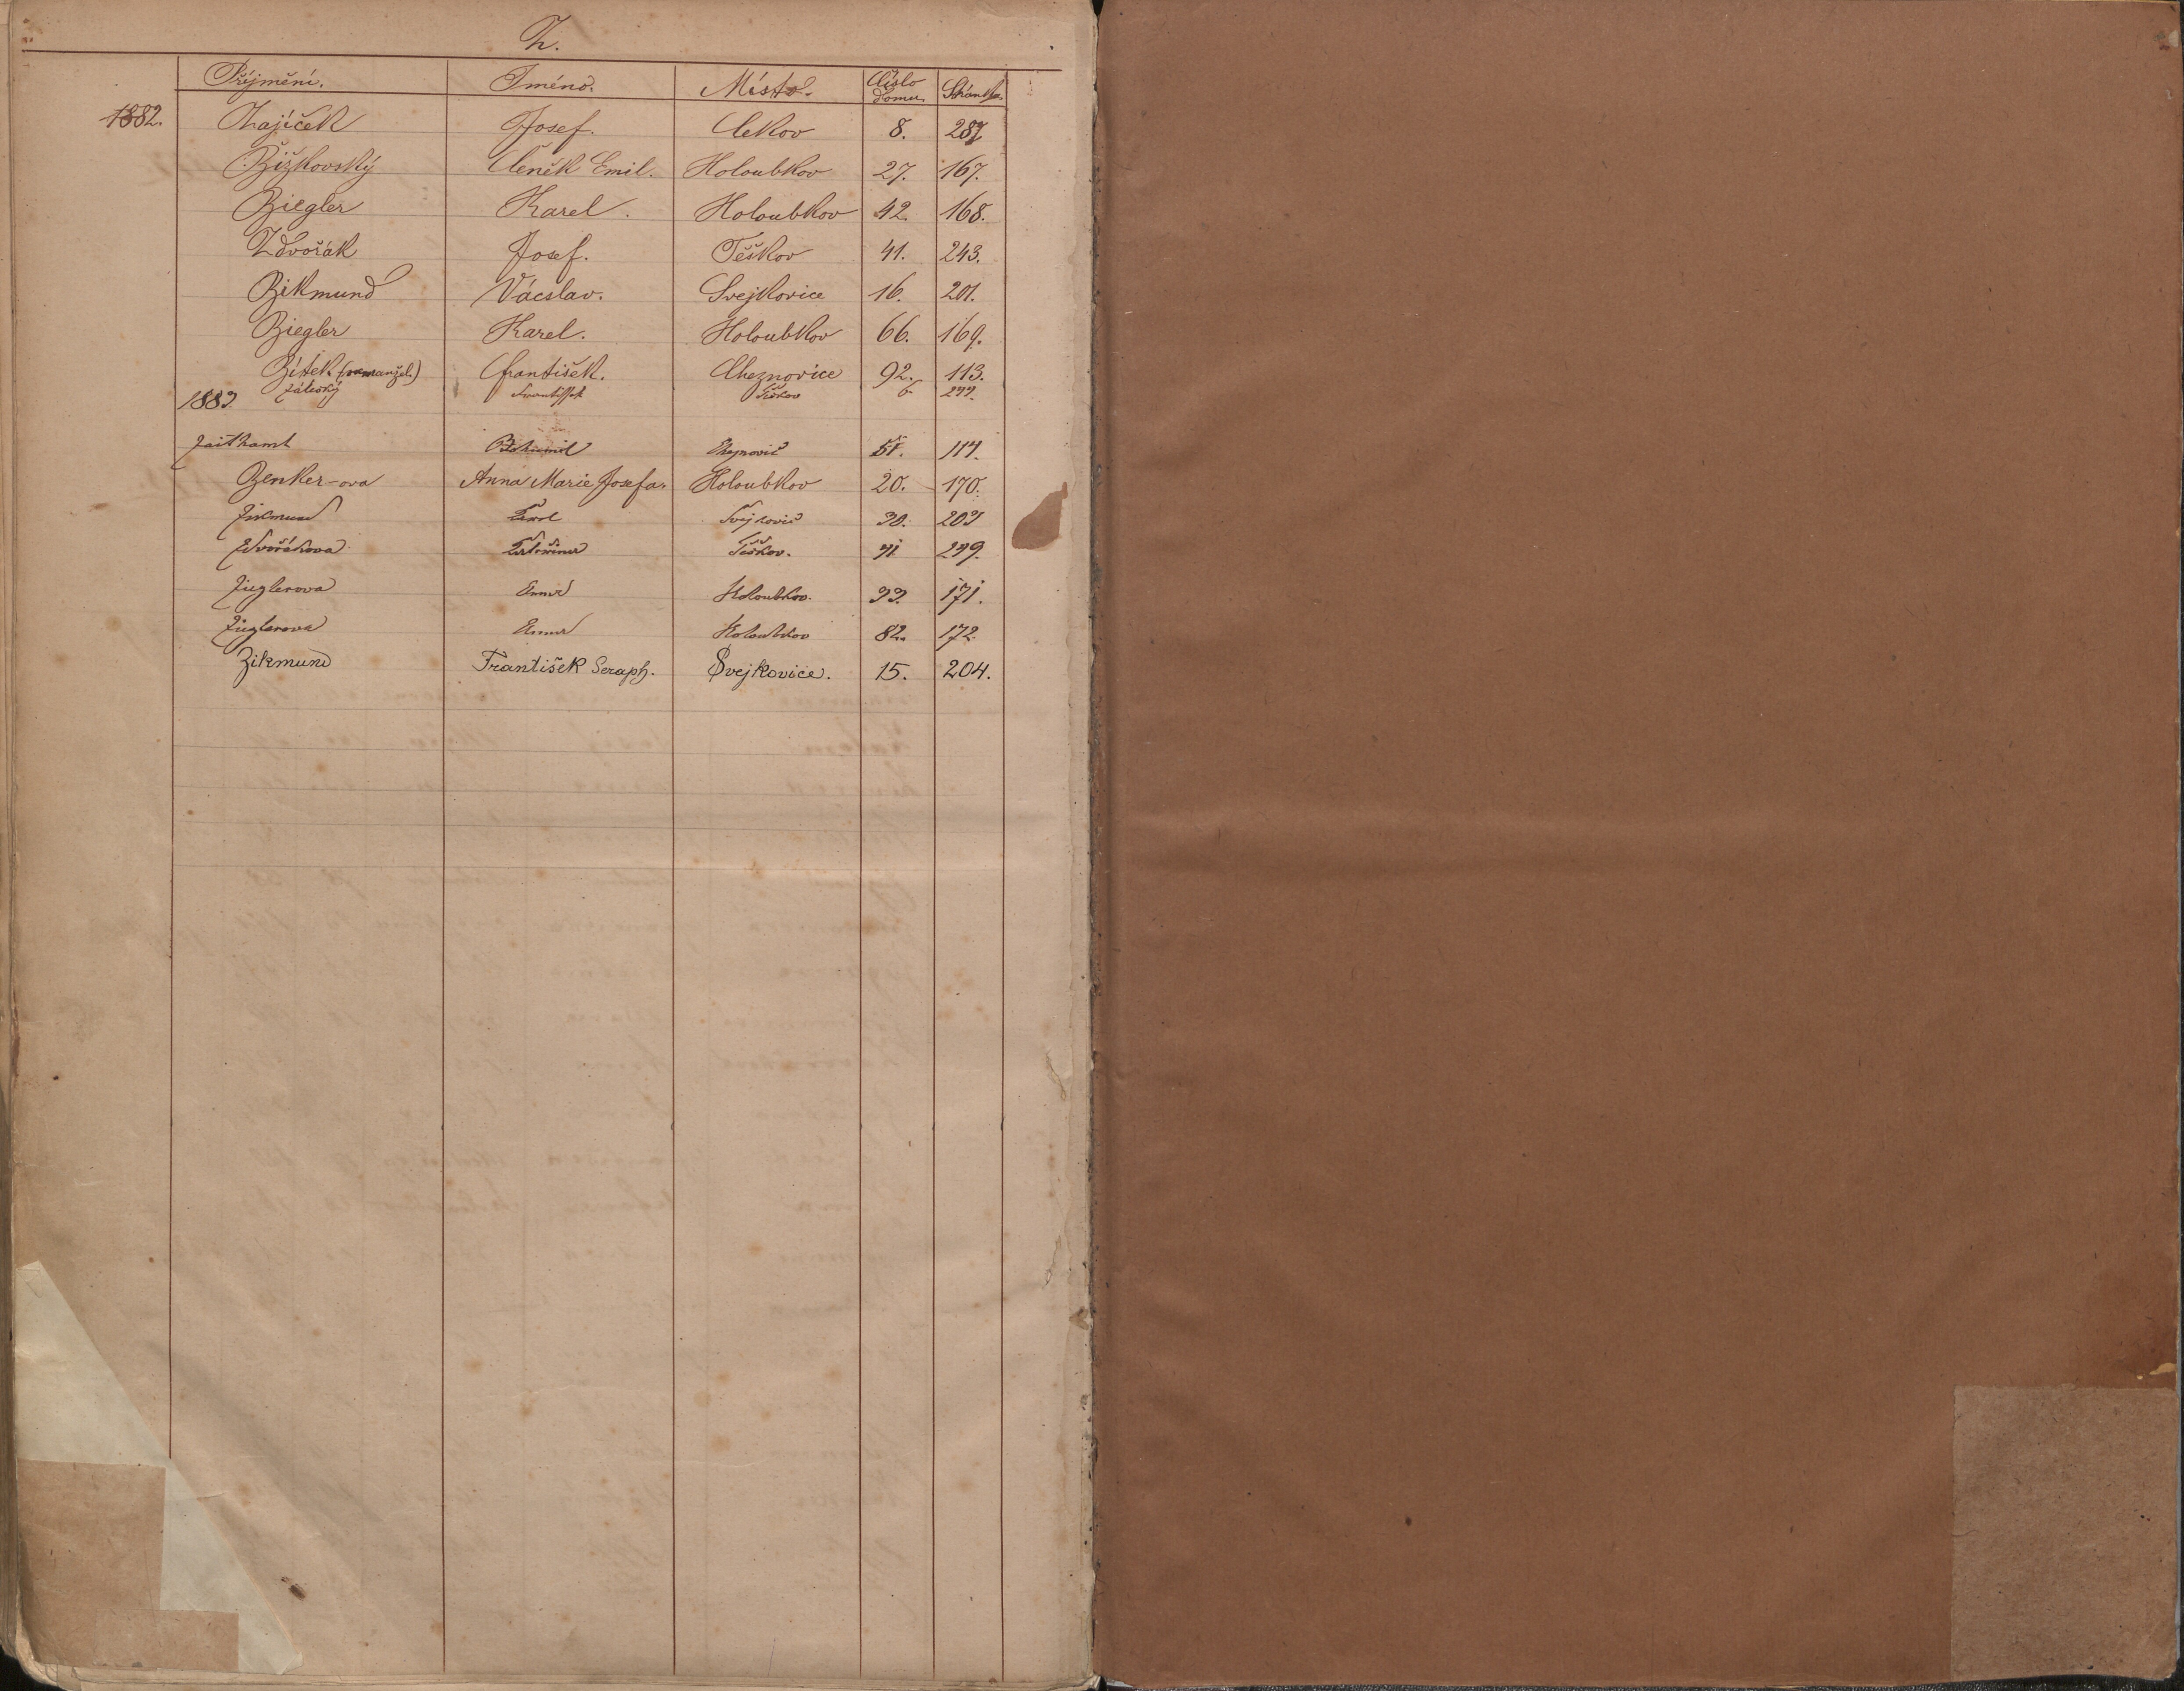 Z.
Příjmění. Jméno. Místo. Číslo domu. Stránka.
1882. Zajíček Josef. Cekov 8. 287
Žižkovský Čeněk Emil. Holoubkov 27. 167.
Ziegler Karel. Holoubkov 42. 168.
Zdvořák Josef. Těškov 41. 243.
Zikmund Vácslav. Svejkovice 16. 201.
Ziegler Karel. Holoubkov 66. 169.
Zítek (nemanžel.) František. Cheznovice 92. 113.
Záleský František Těškov 6 244.
1883.
Zaithaml Bohumil 51. 114.
Zenker-ova Anna Marie Josefa. Holoubkov 20. 170.
Zikmund Karl 30. 203
Zdvořákova Těškov. 41 249.
Zieglerova Anna Holoubkov. 33. 171.
Zieglerova Anna Holoubkov 82. 172.
Zikmund František Seraph. Švejkovice. 15. 204.